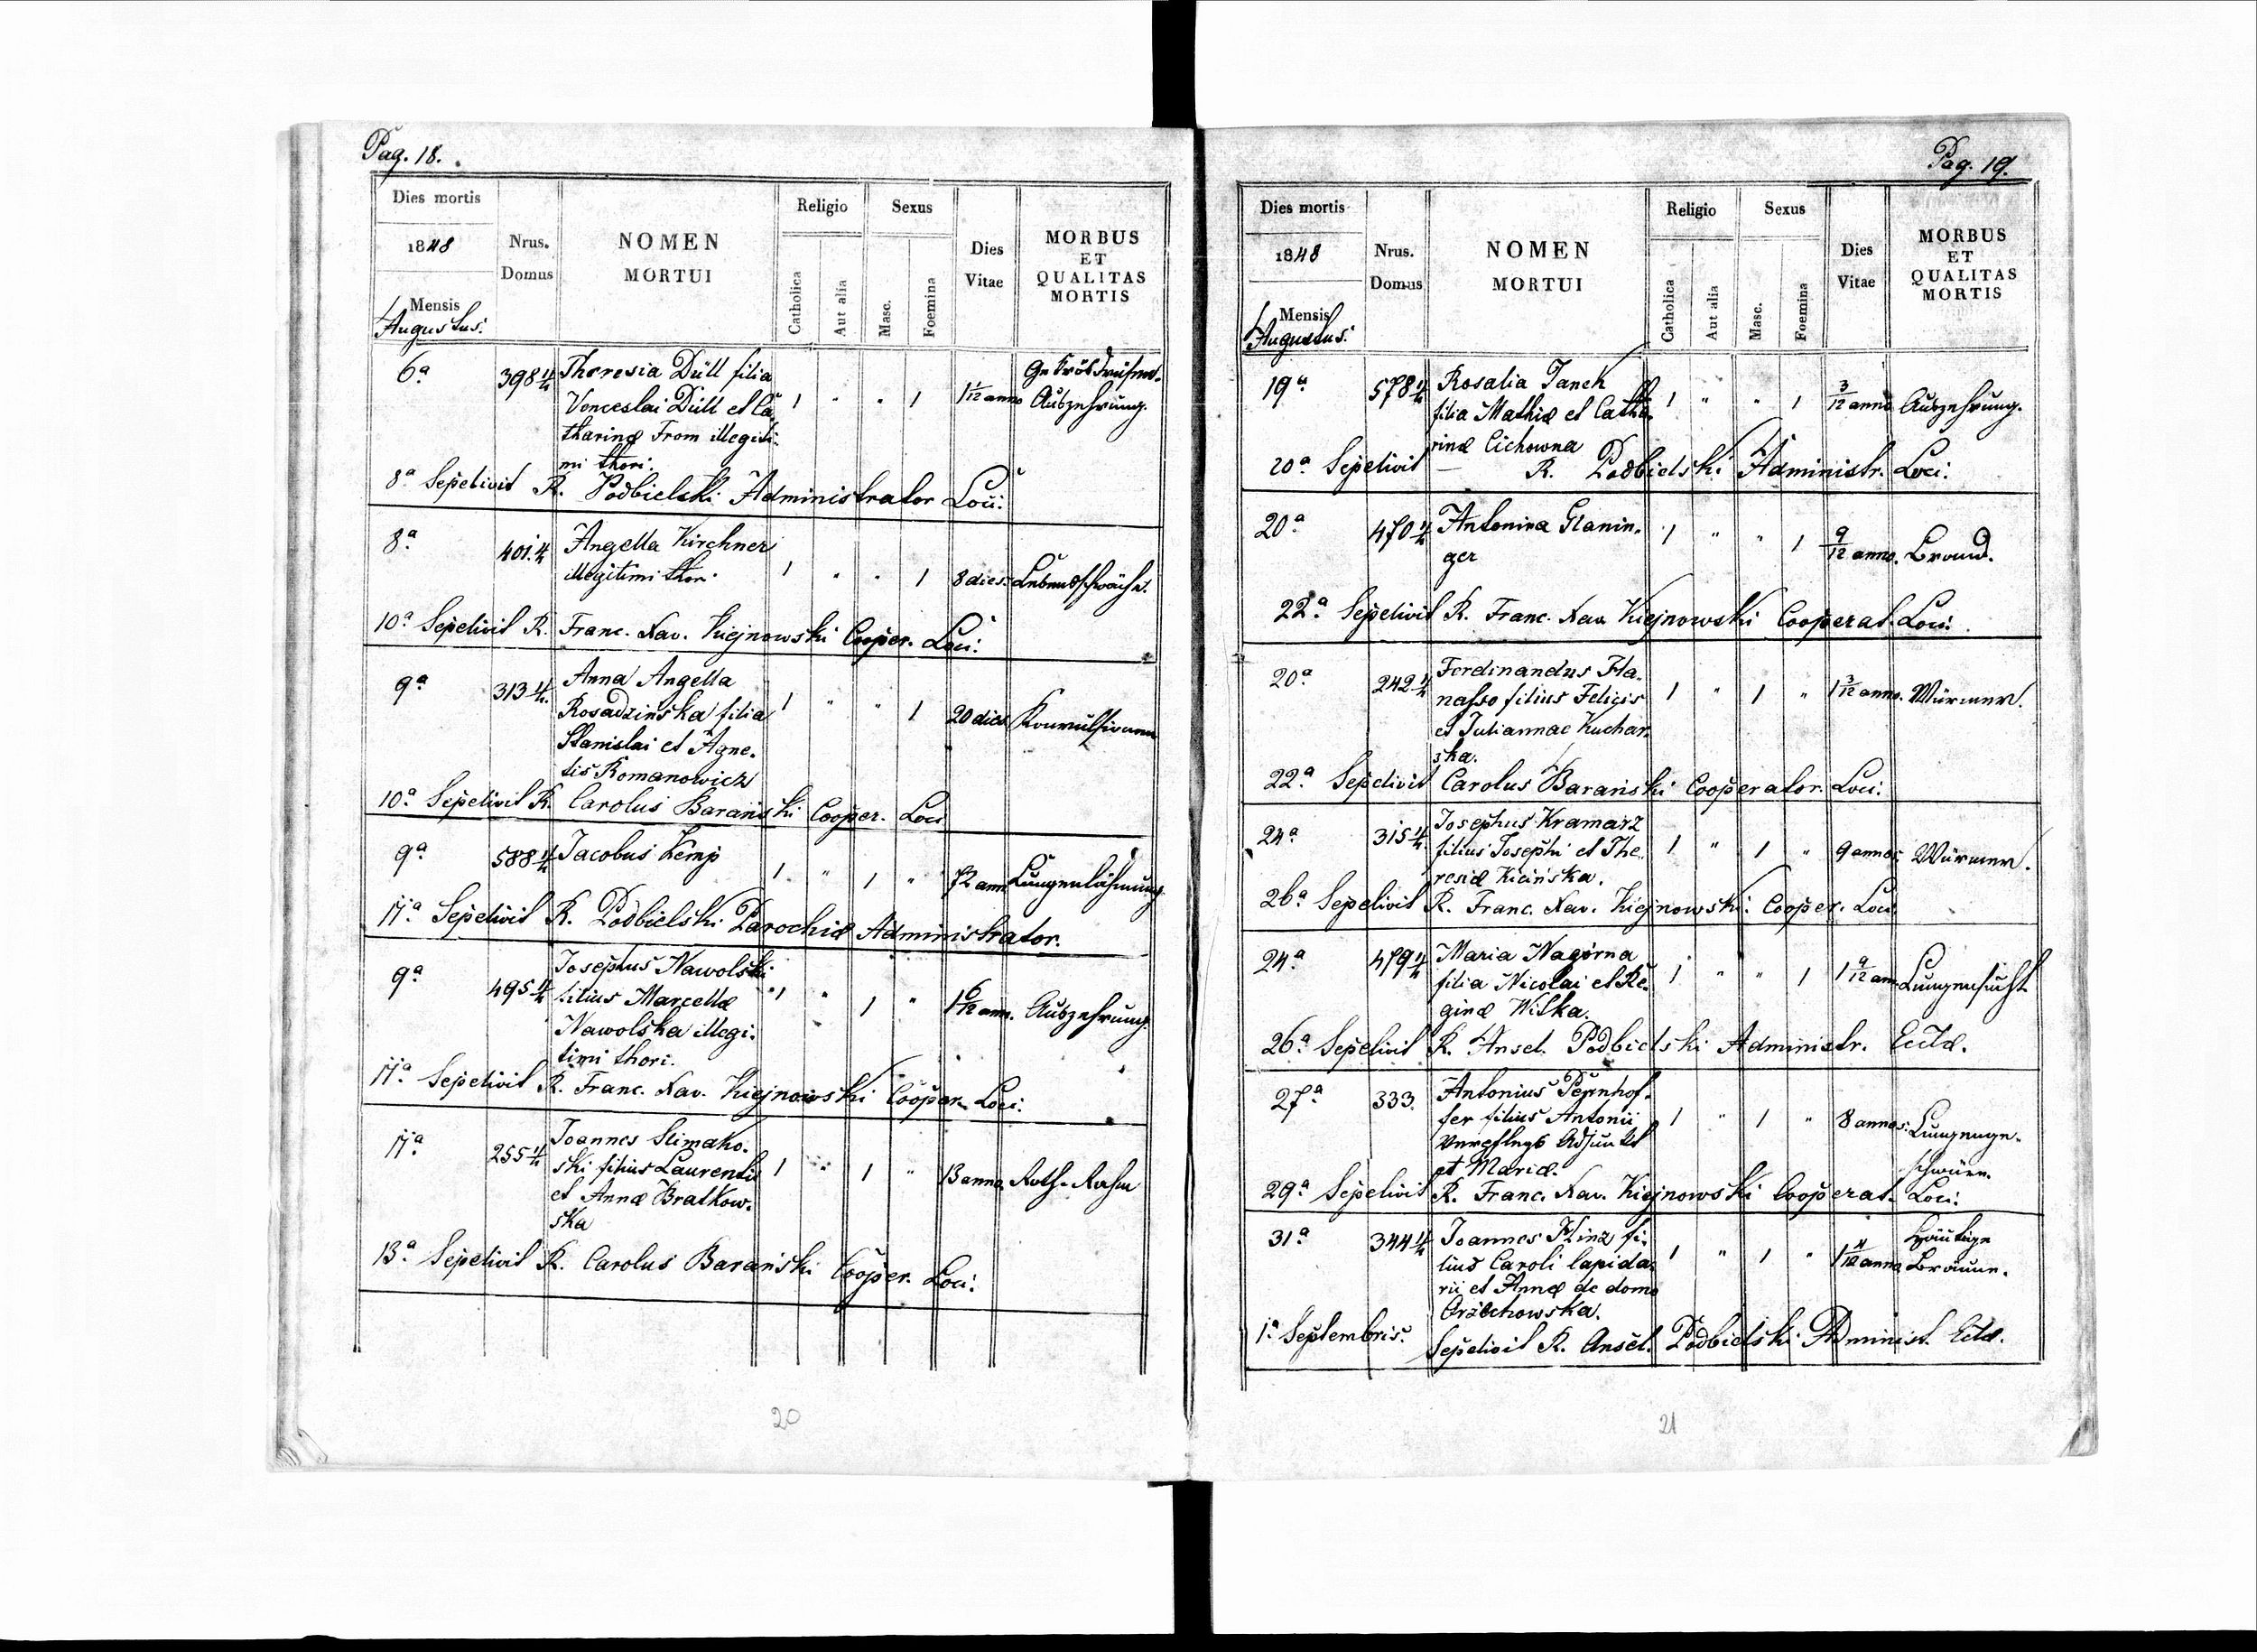 Pag. 18.
Dies mortis
1848
Mensis
Augustus.
Nrus.
Domus
NOMEN
MORTUI
Religio
Catholica
Aut alia
Sexus
Masc.
Foemina
Dies
Vitae
MORBUS
ET
QUALITAS
MORTIS
6a 398 4/4 Theresia Düll filia
Venceslai Düll et Ca-
tharinæ From illegiti-
mi thori.
1 " " 1 1 1/12 anno
Auszehrung.
8a Sepelivit R. Podbielski Administrator Loci.
8a 401.4/4 Angella Kirchner
illegitimi thori
1 " " 1 8 dies. Lebensschwäche.
10a Sepelivit R. Franc. Xav. Kiejnowski Cooper. Loci.
9a 313 4/4. Anna Angella
Rosadzinska filia
Stanislai et Agne-
tis Romanowicz
1 " " 1 20 dies Konvulsionen
10a Sepelivit R. Carolus Barański Cooper. Loci
9a 588 4/4 Jacobus Kemp
1 " 1 " 72 ann. Lungenlähmung
11a Sepelivit R. Podbielski Parochiæ Administrator.
9a 495 4/4 Josephus Nawolski
filius Marcellæ
Nawolska illegi-
timi thori.
1 " 1 " 1 6/12 ann. Auszehrung.
11a Sepelivit R. Franc. Xav. Kiejnowski Cooper. Loci.
11a 255 4/4 Joannes Slimako-
ski filius Laurentii
et Annæ Bratkow-
ska
1 " 1 " 13 anno.
13a Sepelivit R. Carolus Barański Cooper. Loci.
20
Pag. 19.
Dies mortis
1848
Mensis
Augustus.
Nrus.
Domus
NOMEN
MORTUI
Religio
Catholica
Aut alia
Sexus
Masc.
Foemina
Dies
Vitae
MORBUS
ET
QUALITAS
MORTIS
19a 578 4/4 Rosalia Janek
filia Mathiæ et Catha-
rinæ Cichowna
1 " " 1 3/12 anno Auszehrung.
20a Sepelivit R. Podbielski Administr. Loci.
20a 470 4/4 Antonina Glanin-
ger
1 " " 1 9/12 anno. Brand.
22a Sepelivit R. Franc. Xav. Kiejnowski Cooperat. Loci.
20a 242 4/4 Ferdinandus
filius Felicis
et Juliannae Kuchar-
ska.
1 " 1 " 1 3/12 anno. Würmer.
22a Sepelivit Carolus Barański Cooperator Loci.
24a 315 4/4 Josephus Kramarz
filius Josephi et The-
resiæ Kicińska.
1 " 1 " 9 annos. Würmer.
26a Sepelivit R. Franc. Xav. Kiejnowski Cooper. Loci.
24a 479 4/4 Maria Nagórna
filia Nicolai et Re-
ginæ Wilka.
1 " " 1 1 9/12 ann. Lungensucht
26a Sepelivit R. Ansel. Podbielski Administr. Eccla.
27a 333. Antonius Pernhof-
fer filius Antonii
Verpflegs Adjunkt
et Mariæ.
1 " 1 " 8 annos. Lungenge-
schwüre.
29a Sepelivit R. Franc. Xav. Kiejnowski Cooperat. Loci.
31a 344 4/4 Joannes Hinz fi-
lius Caroli lapida-
rii et Annæ de domo
Orzechowska.
1 " 1 " 1 4/12 anno Häutige
Bräune.
1a Septembris. Sepelivit R. Ansel. Podbielski Administ. Eccla.
21